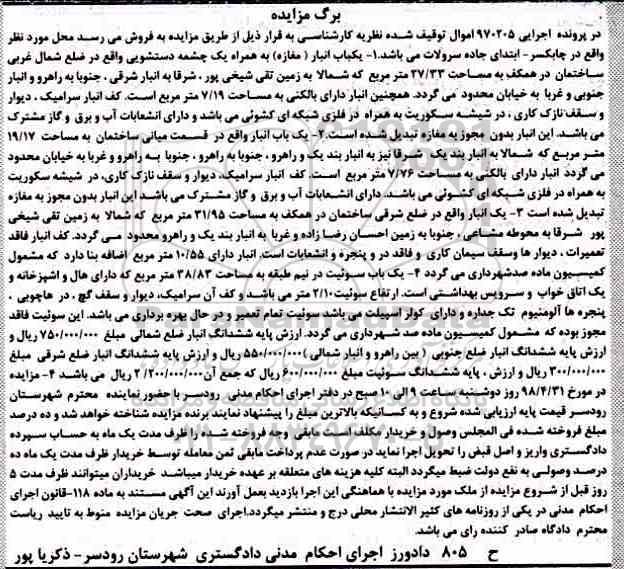 برگ مزایده
در پرونده اجرایی ۹۷۰۲۰۵ اموال توقیف شده نظریه کارشناسی به قرار ذیل از طریق مزایده به فروش می رسد محل مورد نظر
واقع در چابکسر- ابتدای جاده سرولات می باشد.۱- یکباب انبار ( مغازه) به همراه یک چشمه دستشویی واقع در ضلع شمال غربی
ساختمان در همکف به مساحت ۲۷/۳۳ متر مربع که شمالا به زمین تقی شیخی پور ، شرقا به انبار شرقی ، جنوبا به راهرو و انبار
جنوبی و غربا به خیابان محدود می گردد. همچنین انبار دارای بالکنی به مساحت ۷/۱۹ متر مربع است. کف انبار سرامیک ، دیوار
و سقف نازک کاری ، در شیشه سکوریت به همراه در فلزی شبکه ای کشوئی می باشد و دارای انشعابات آب و برق و گاز مشترک
می باشد. این انبار بدون مجوز به مغازه تبدیل شده است.۲- یک باب انبار واقع در قسمت میانی ساختمان به مساحت ۱۹/۱۷
متر مربع که شمالا به انبار بند یک شرقا نیز به انبار بند یک و راهرو ، جنوبا به راهرو ، جنوبا به راهرو و غربا به خیابان محدود
می گردد انبار دارای بالکنی به مساحت ۷/۷۶ متر مربع است. کف انبار سرامیک، دیوار و سقف نازک کاری، در شیشه سکوریت
به همراه در فلزی شبکه ای کشوئی می باشد. دارای انشعابات آب و برق و گاز مشترک می باشد این انبار بدون مجوز به مغازه
تبدیل شده است ۳- یک انبار واقع در ضلع شرقی ساختمان در همکف به مساحت ۳۱/۹۵ متر مربع که شمالا به زمین تقی شیخی
پور شرقا به محوطه مشاعی ، جنوبا به زمین احسان رضا زاده و غربا به انبار بند یک و راهرو محدود می گردد. کف انبار فاقد
تعمیرات ، دیوار ها وسقف سیمان کاری و فاقد در و پنجره و انشعابات است. انبار دارای ۱۰/۵۵ متر مربع اضافه بنا دارد که مشمول
کمیسیون ماده صدشهرداری می گردد ۴- یک باب سوئیت در نیم طبقه به مساحت ۳۸/۸۳ متر مربع که دارای هال و اشپزخانه و
یک اتاق خواب و سرویس بهداشتی است. ارتفاع سوئیت۲/۱۰ متر می باشد و کف آن سرامیک، دیوار و سقف گچ ، در هاچوبی ،
پنجره ها آلومنیوم تک جداره و دارای کولر اسپیلت می باشد سوئیت تمام تعمیر و در حال بهره برداری می باشد. این سوئیت فاقد
مجوز بوده که مشمول کمیسیون ماده صد شهرداری می گردد. ارزش پایه ششدانگ انبار ضلع شمالی مبلغ ۷۵۰/۰۰۰/۰۰۰ ریال و
ارزش پایه ششدانگ انبار ضلع جنوبی ( بین راهرو و انبار شمالی )۵۵۰/۰۰۰/۰۰۰ ریال و ارزش پایه ششدانگ انبار ضلع شرقی مبلغ
۳۰۰/۰۰۰/۰۰۰ ریال و ارزش ، پایه ششدانگ سوئیت مبلغ ۶۰۰/۰۰۰/۰۰۰ ریال که جمع آن۲/۲۰۰/۰۰۰/۰۰۰ ریال می باشد ۴- مزایده
در مورخ ۹۸/۴/۳۱ روز دوشنبه ساعت ۹ الی ۱۰ صبح در دفتر اجرای احکام مدنی رودسر با حضور نماینده محترم شهرستان
رودسر قیمت پایه ارزیابی شده شروع و به کسانیکه بالاترین مبلغ را پیشنهاد نمایند برنده مزایده شناخته خواهد شد و ده درصد
مبلغ فروخته شده فی المجلس وصول و خریدار مکلف است مابقی وجه فروخته شده را ظرف مدت یک ماه به حساب سپرده
دادگستری واریز و اصل قبض را تحویل اجرا نماید در صورت عدم پرداخت مابقی ثمن معامله توسط خریدار ظرف مدت یک ماه ده
درصد وصولی به نفع دولت ضبط میگردد البته کلیه هزینه های متعلقه بر عهده خریدار میباشد خریداران میتوانند ظرف مدت ۵
روز قبل از شروع مزایده از ملک مورد مزایده با هماهنگی این اجرا بازدید بعمل آورند این آگهی مستند به ماده ۱۱۸-قانون اجرای
احکام مدنی در یکی از روزنامه های کثیر الانتشار محلی درج و منتشر میگردد.اجرای صحت جریان مزایده منوط به تایید ریاست
محترم دادگاه صادر کننده رای می باشد.
ح ۸۰۵ دادورز اجرای احکام مدنی دادگستری شهرستان رودسر- ذکریا پور